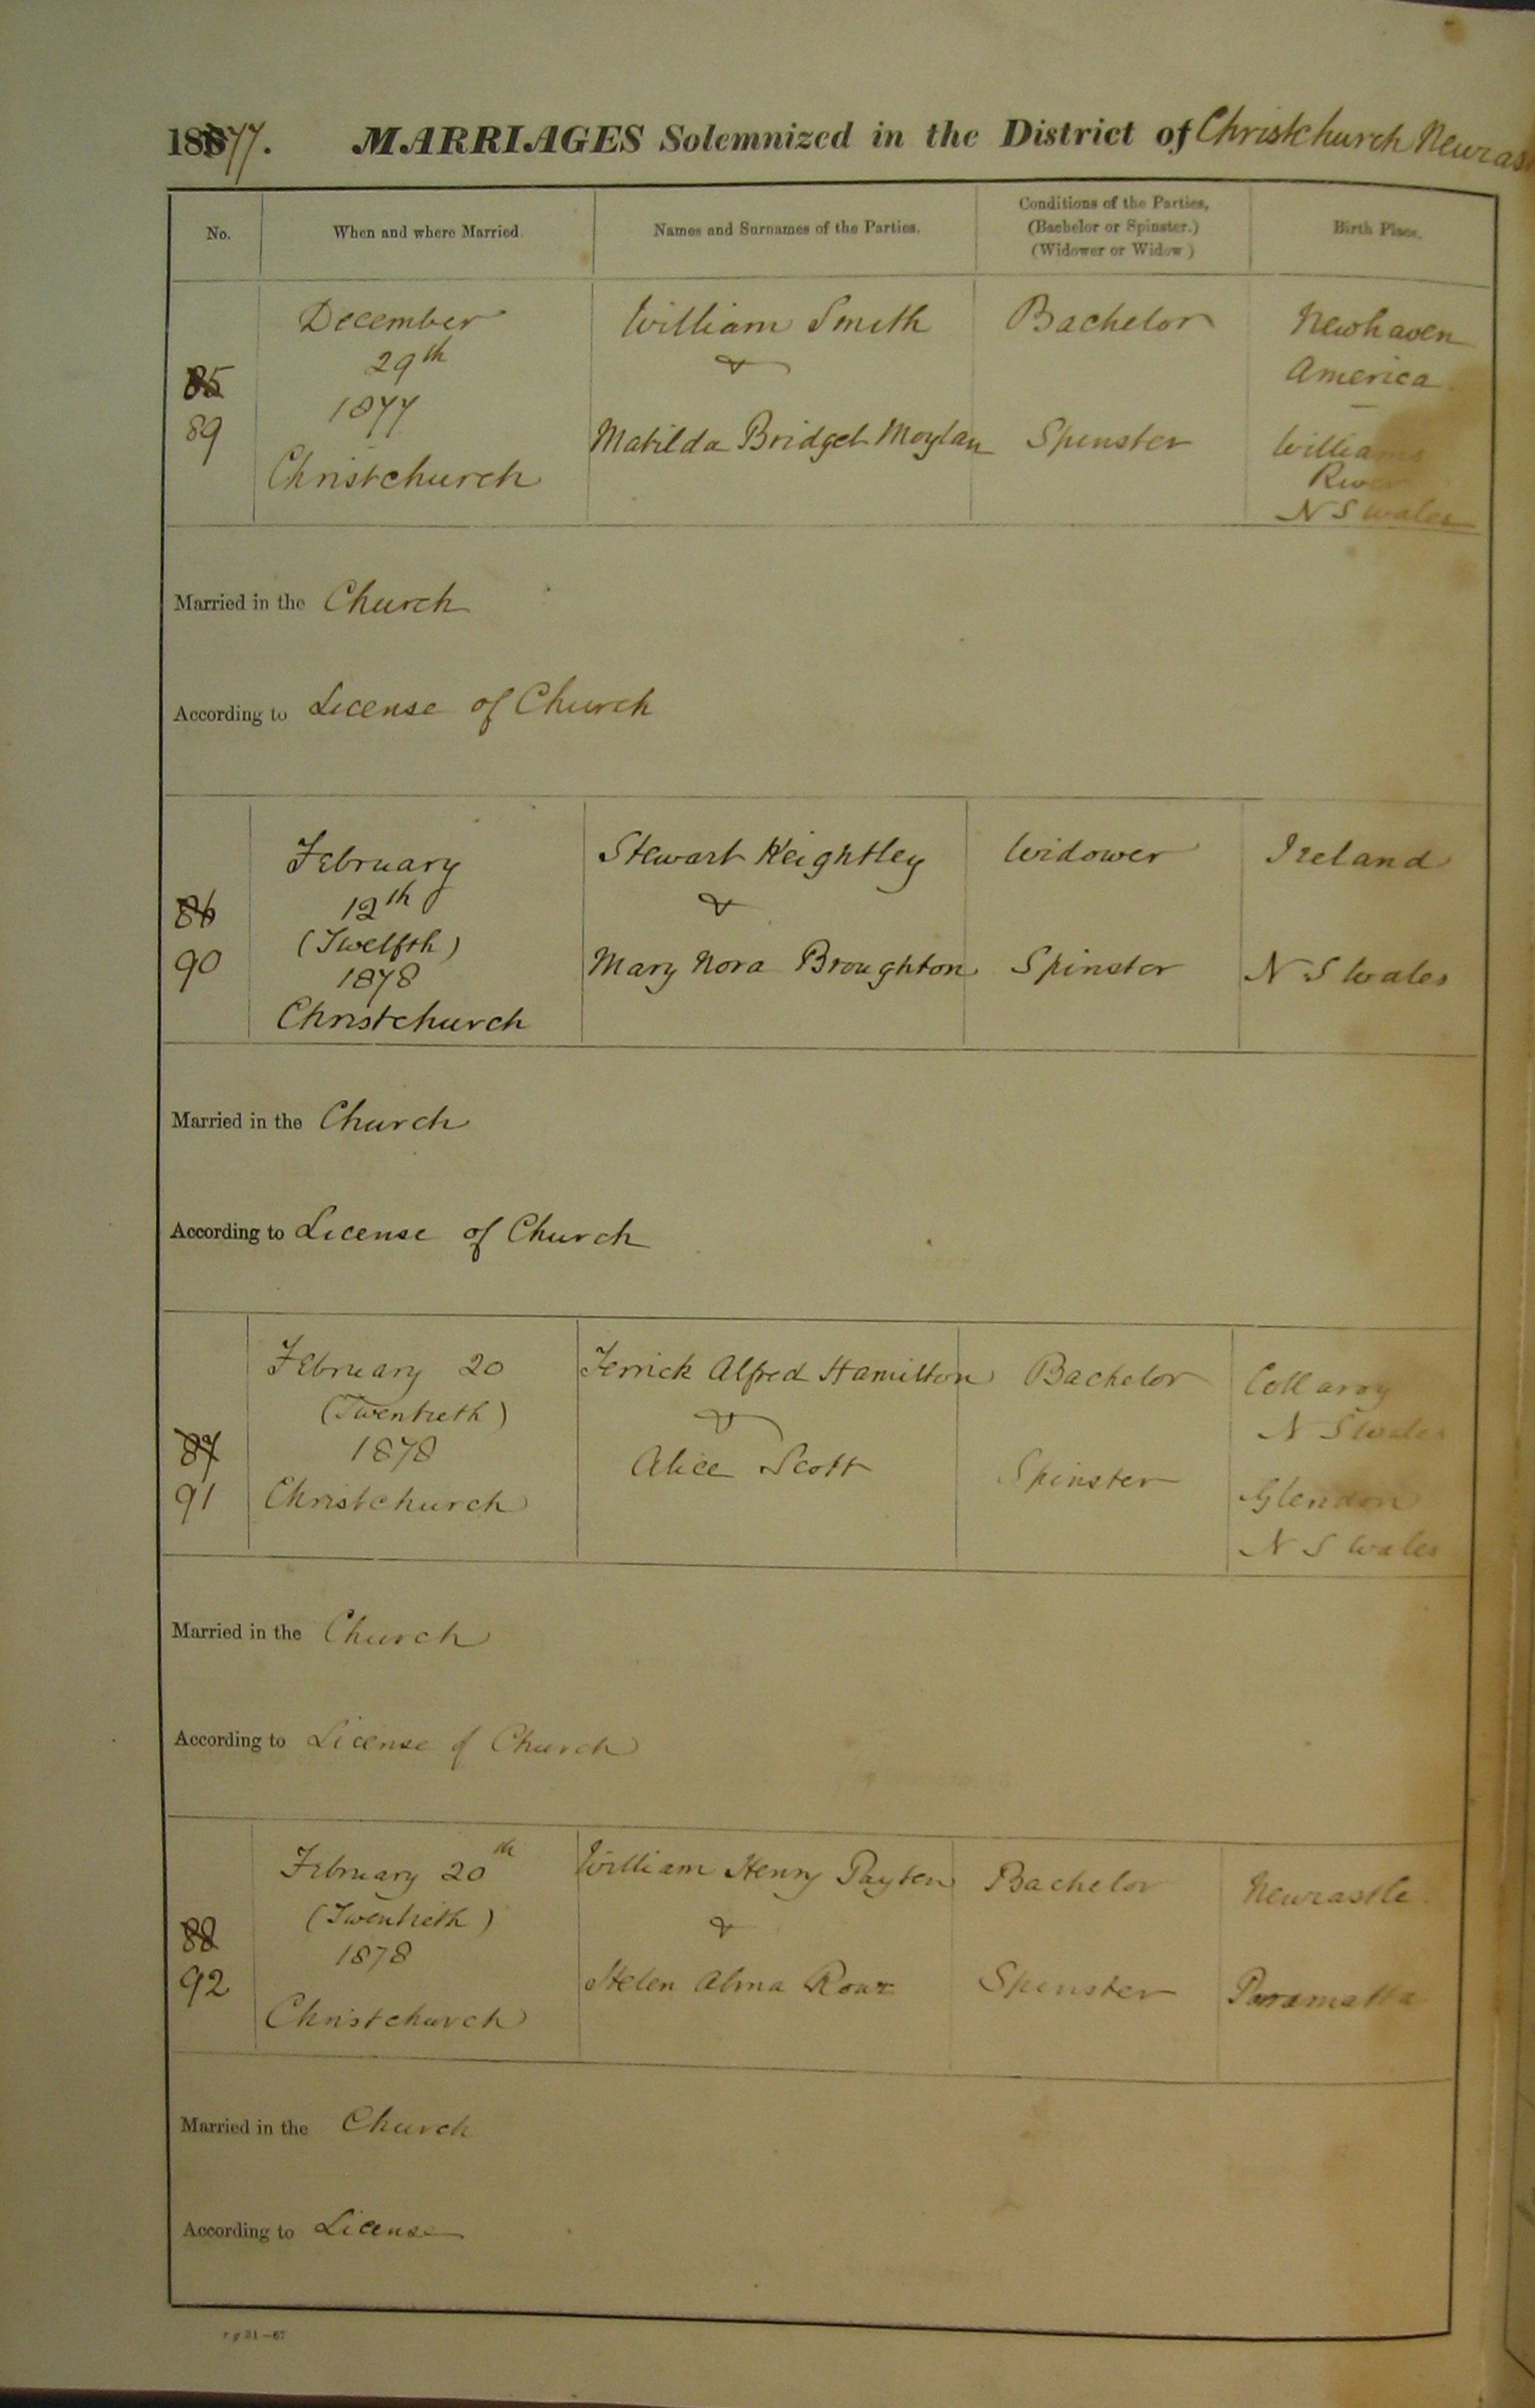 1877. MARRIAGES Solemnized in the District of Christchurch Newcas
No. When and where Married. Names and Surnames of the Parties. Conditions of the Parties, (Bachelor or Spinster.) (Widower or Widow) Birth Place.
December William Smith Bachelor Newhaven
29th & America
85
1877
89 Matilda Bridget Moylan Spinster Williams
Christchurch River
N S Wales
Married in the Church
According to License of Church
February Stewart Keightley Widower Ireland
86 12th &
(Twelfth)
90 1878 Mary Nora Broughton Spinster N S Wales
Christchurch
Married in the Church
According to License of Church
February 20 Terrick Alfred Hamilton Bachelor Collaroy
(Twentieth) & N S Wales
87 1878 Alice Scott Spinster Glendon
91 Christchurch N S Wales
Married in the Church
According to License of Church
February 20th William Henry Payten Bachelor Newcastle
(Twentieth) &
88 1878
92 Helen Alma Spinster Paramatta
Christchurch
Married in the Church
According to License